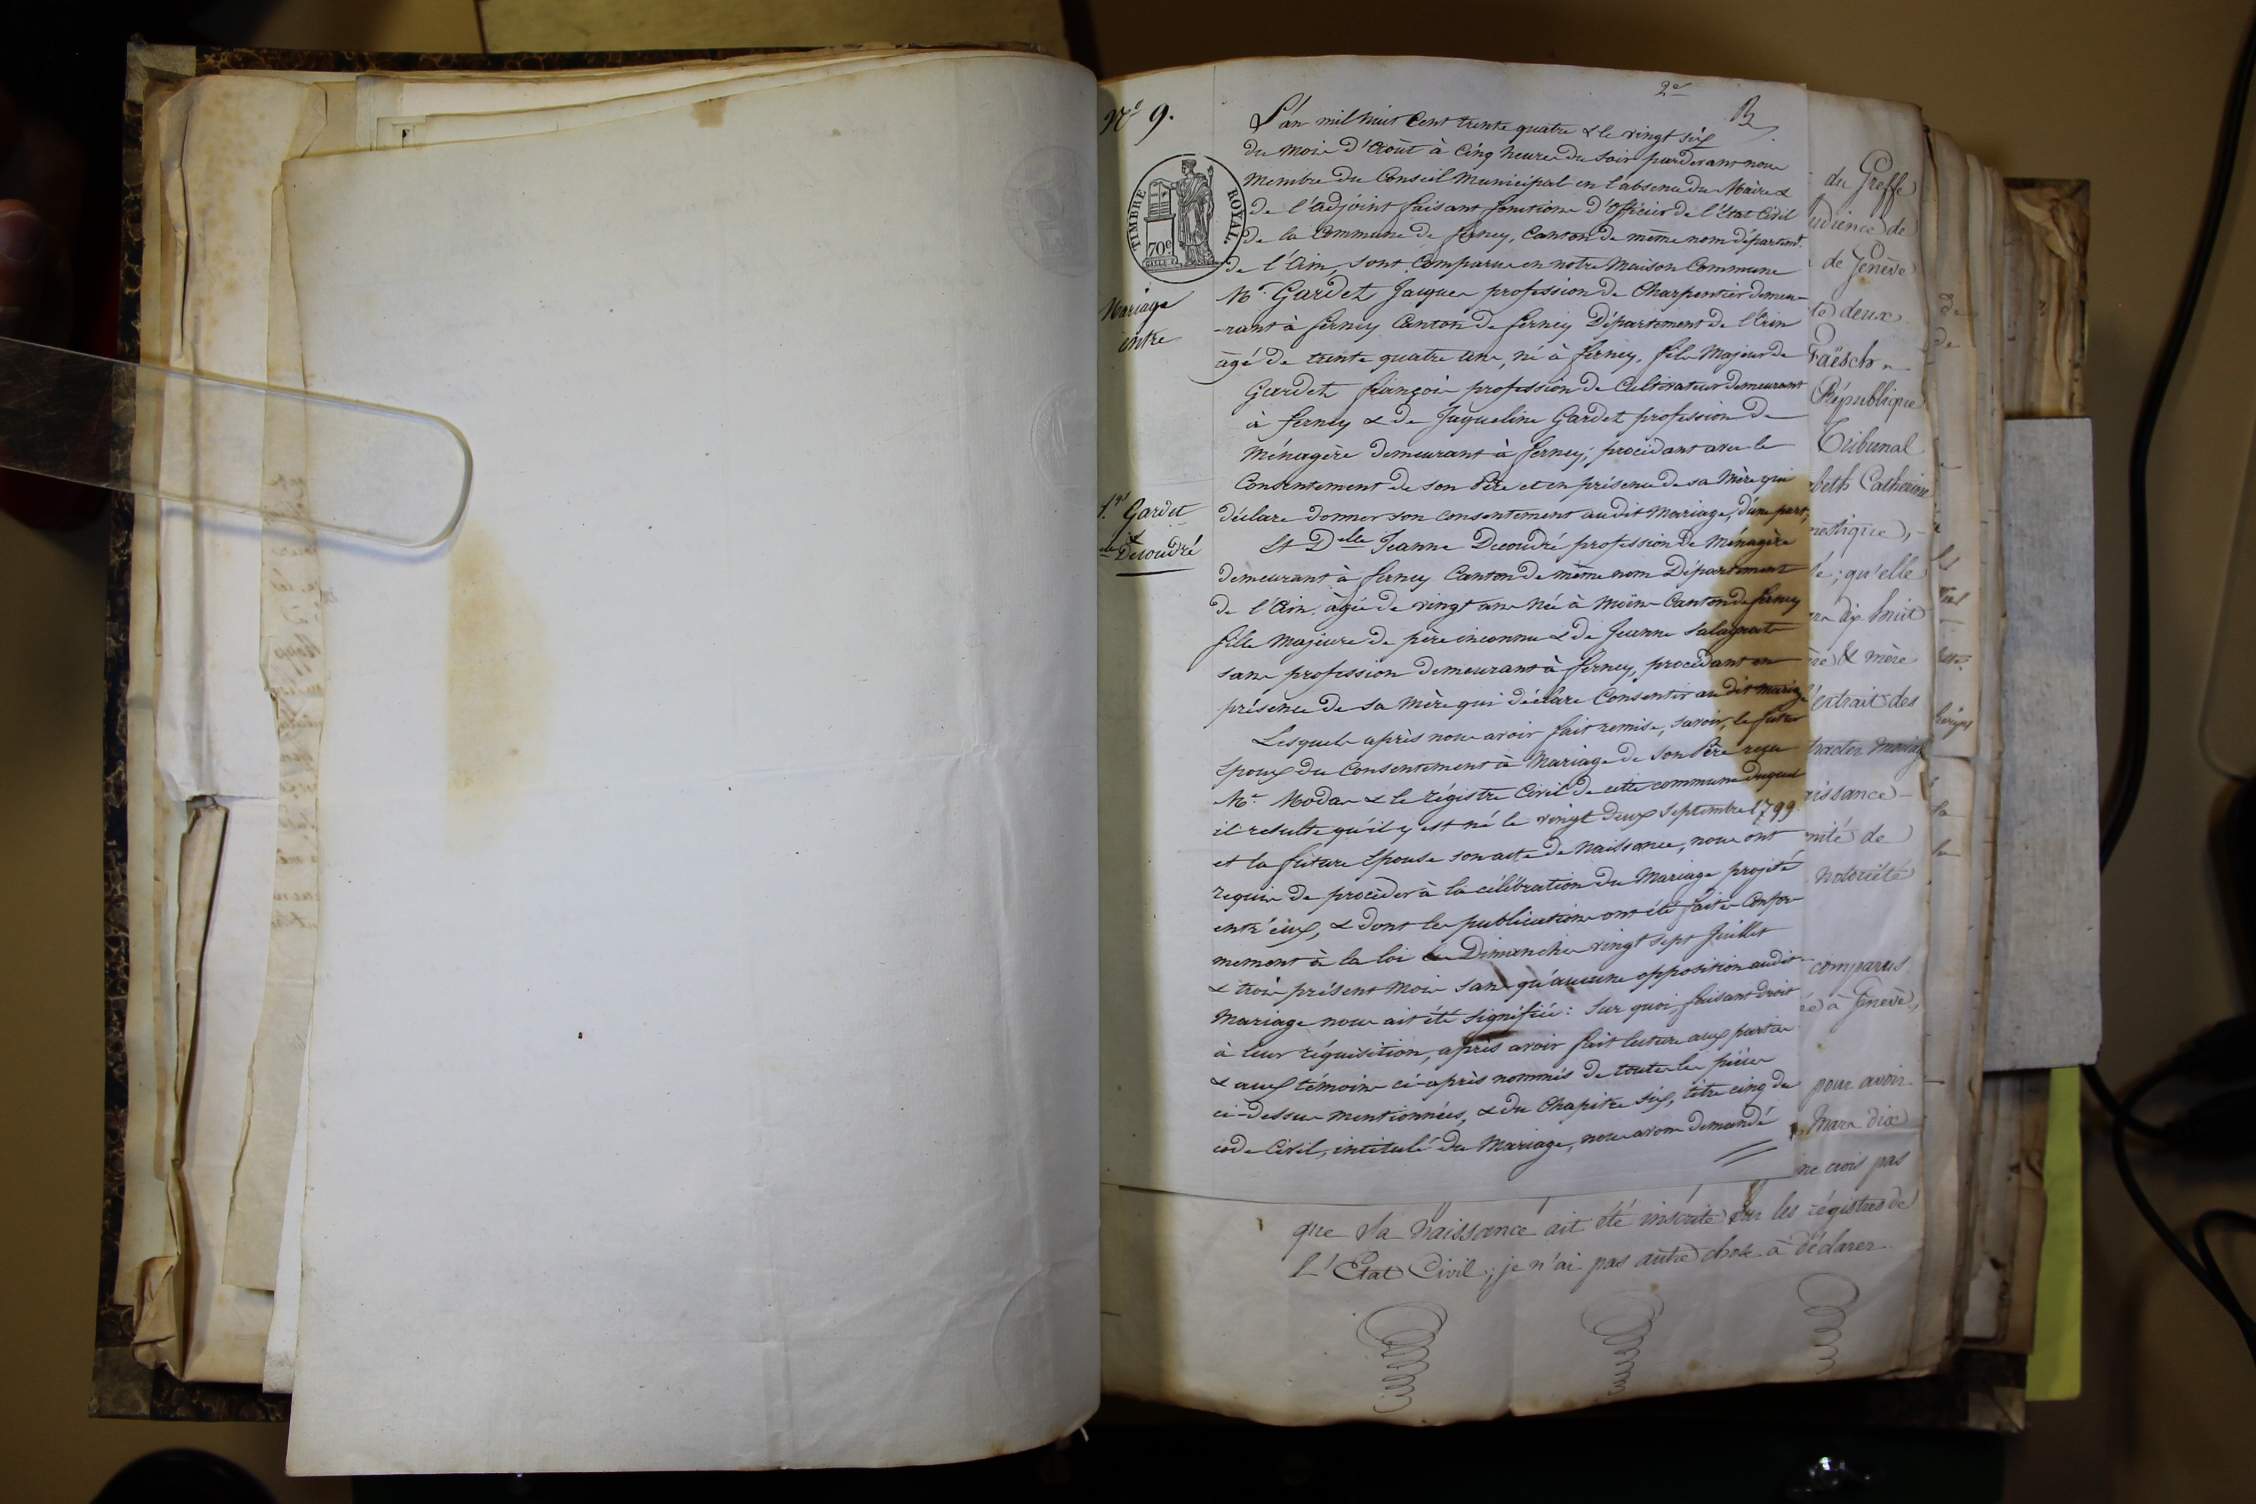 2e
B
No 9.
L'an mil huit Cent trente quatre & le vingt six
du mois d'Août à Cinq heures du Soir pardevant nous
Membre du Conseil Municipal en l'absence du Maire &
de l'adjoint faisant fonctions d'officier de l'État Civil
de la Commune de ferney, Canton de même nom départemt.
de l'Ain, sont Comparus en notre Maison Commune
TIMBRE ROYAL.
70c
Mariage
entre
Mr. Gardet Jacques profession de Charpentier demeu-
-rant à ferney Canton de ferney Département de l'Ain
âgé de trente quatre ans, né à ferney, fils Majeur de
Gardet françois profession de Cultivateur demeurant
à ferney & de Jaqueline Gardet profession de
Ménagère demeurant à ferney; procédant avec le
Consentement de son Père et en présence de sa Mère qui
déclare donner son consentement audit Mariage, d'une part,
Sr. Gardet
&
elle Decoudré
Et Delle Jeanne Decoudré profession de Ménagère
demeurant à ferney Canton de même nom Département
de l'Ain, âgée de vingt ans Née à Moëns Canton de ferney
fille Majeure de père inconnu & de Jeanne
sans profession demeurant à ferney, procédant en
présence de sa Mère qui déclare Consentir au dit mariage
Lesquels après nous avoir fait remise, savoir, le futur
Epoux du Consentement à Mariage de Son Père reçu
Me. Modas & le régistre Civil de cette commune duquel
il resulte qu'il y est né le vingt deux Septembre 1799.
et la future Epouse son acte de Naissance, nous ont
requis de procéder à la célébration du Mariage projeté
entr'eux, & dont les publications ont été faites Confor
mement à la loi les Dimanches vingt sept Juillet
& trois présent Mois sans qu'aucune opposition audit
Mariage nous ait été signifiée: Sur quoi, faisant droit
à leur réquisition, après avoir fait lecture aux parties
& aux témoins ci-après nommés de toutes les pièces
ci-dessus mentionnées, & du Chapitre Six, titre cinq du
code Civil, intitulé du Mariage, nous avons demandé
du Greffe
udience de
de Genève
deux
Faësch
République
Tribunal
beth Catherine
mestique,
; qu'elle
dix huit
& mère
l'extrait des
tracter Mariage
issance
mité de
notoriété
comparus
à Genève,
pour avoir
Mars dix
ne crois pas
que sa Naissance ait été inscrite sur les régistres de
L'Etat Civil; je n'ai pas autre chose à déclarer.